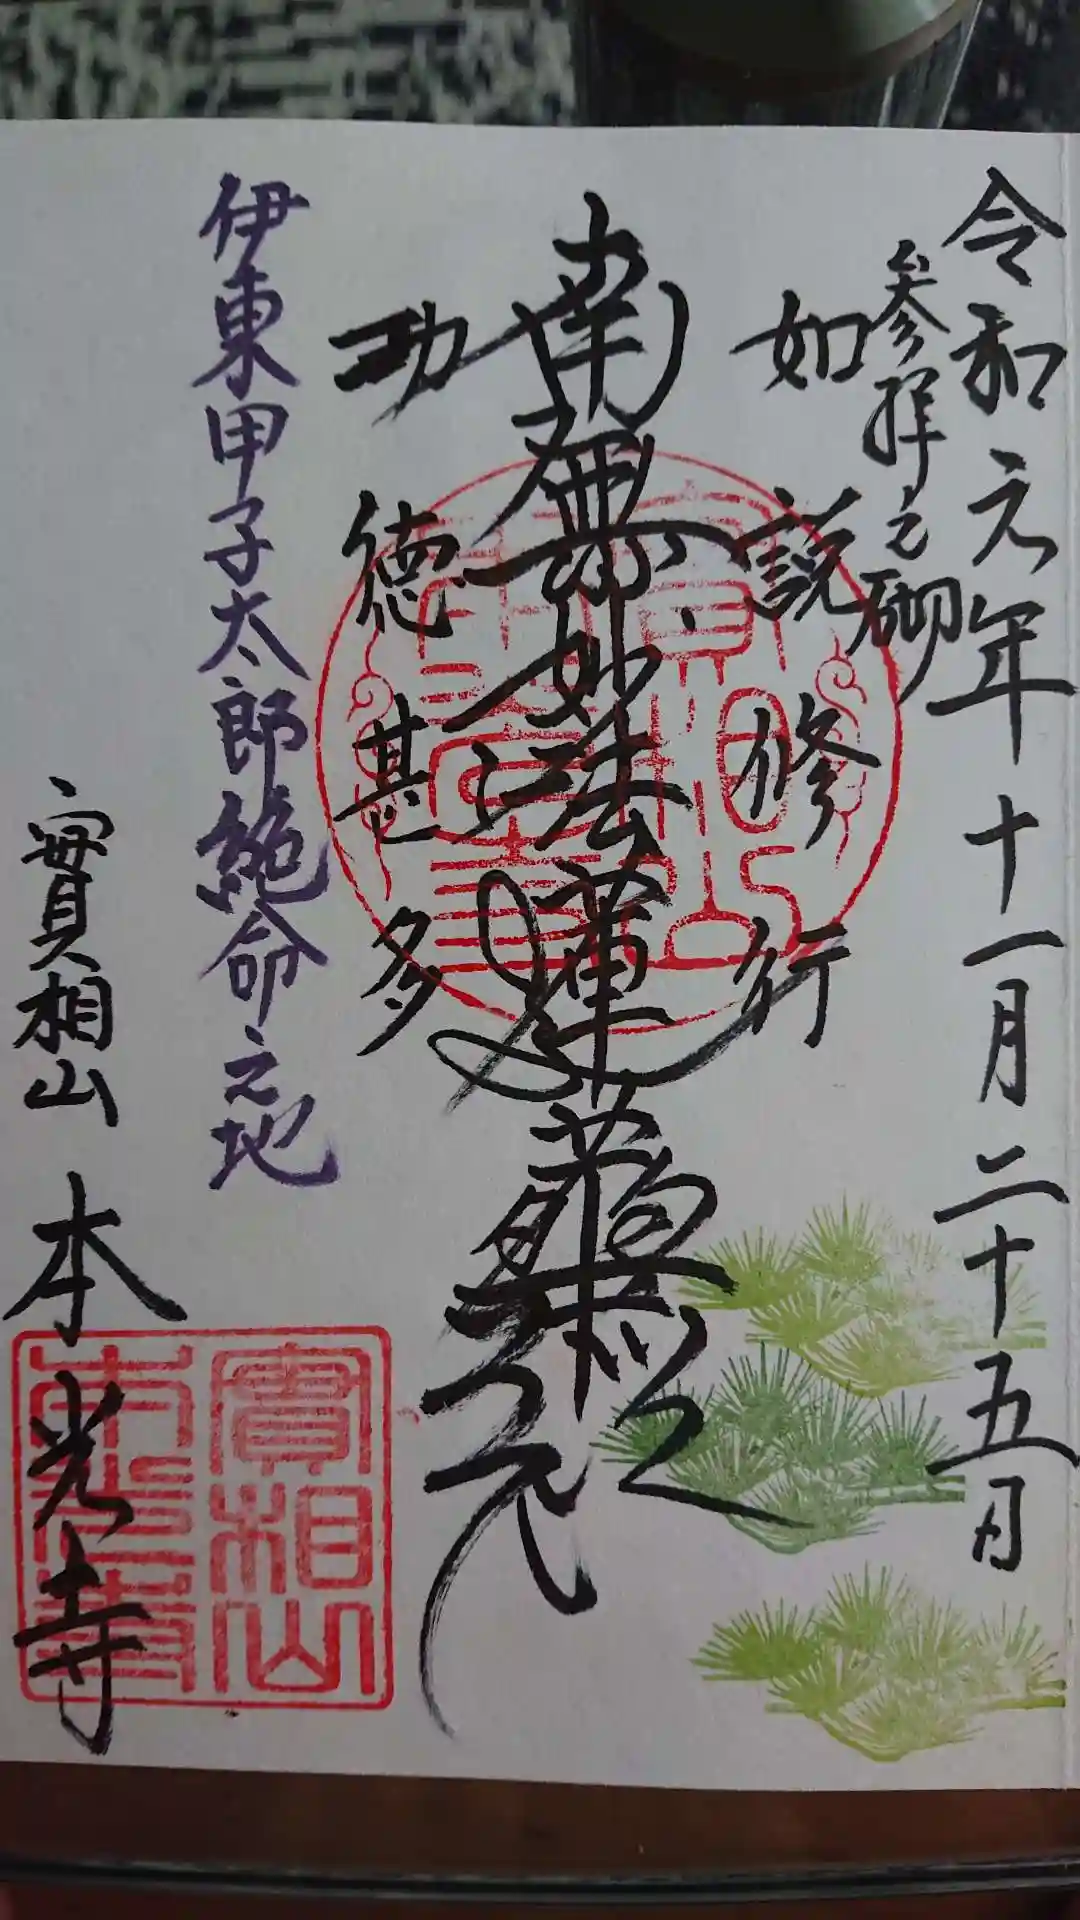 令和元年十一月二十五日
参拝之砌
如説修行
南無妙法蓮華経
功徳甚多
伊東甲子太郎絶命之地
實相山
本光寺
實相山
本光寺